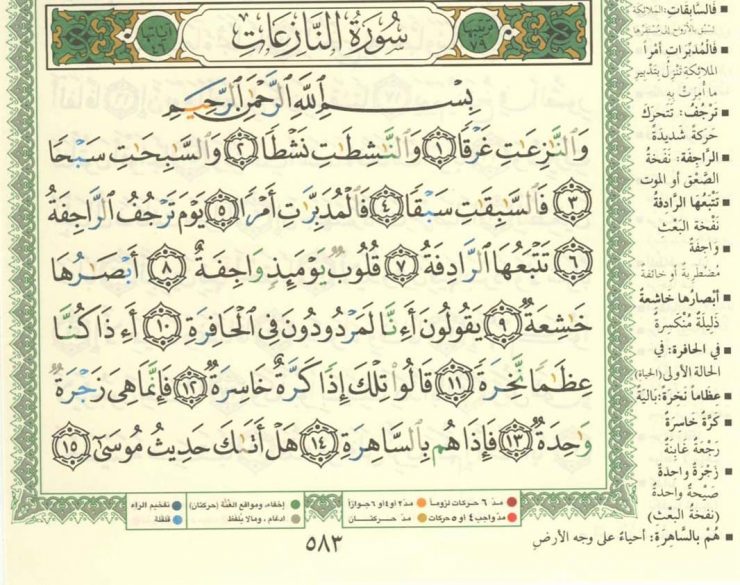 تَرتيبهَا ٧٩
سُورَةُ النَّازِعَات
آيَاتها ٤٦
بِسْمِ اللَّهِ الرَّحْمَٰنِ الرَّحِيمِ
وَالنَّٰزِعَٰتِ غَرْقًا ١ وَالنَّٰشِطَٰتِ نَشْطًا ٢ وَالسَّٰبِحَٰتِ سَبْحًا
٣ فَالسَّٰبِقَٰتِ سَبْقًا ٤ فَالْمُدَبِّرَٰتِ أَمْرًا ٥ يَوْمَ تَرْجُفُ الرَّاجِفَةُ
٦ تَتْبَعُهَا الرَّادِفَةُ ٧ قُلُوبٌ يَوْمَئِذٍ وَاجِفَةٌ ٨ أَبْصَٰرُهَا
خَٰشِعَةٌ ٩ يَقُولُونَ أَءِنَّا لَمَرْدُودُونَ فِي الْحَافِرَةِ ١٠ أَءِذَا كُنَّا
عِظَٰمًا نَّخِرَةً ١١ قَالُوا تِلْكَ إِذًا كَرَّةٌ خَاسِرَةٌ ١٢ فَإِنَّمَا هِيَ زَجْرَةٌ
وَٰحِدَةٌ ١٣ فَإِذَا هُم بِالسَّاهِرَةِ ١٤ هَلْ أَتَىٰكَ حَدِيثُ مُوسَىٰ ١٥
فَالسَّابِقَاتِ: الملائكة
تسبق بالأرواح إلى مستقرها
فَالْمُدَبِّرَاتِ أَمْراً
الملائكة تنزل بتدبير
ما أُمِرَتْ به
تَرْجُفُ: تتحرك
حركة شديدة
الرَّاجِفَة: نفخة
الصَّعْق أو الموت
تَتْبَعُهَا الرَّادِفَةُ
نفخة البعْثِ
وَاجِفَةٌ
مُضْطَرِبَة أو خائفة
أَبْصَارُهَا خَاشِعَةٌ
ذليلة مُنْكَسِرة
في الحافرة: في
الحالة الأولى (الحياة)
عِظَاماً نَخِرَة: بَالِيَةً
كَرَّةٌ خَاسِرَةٌ
رَجْعَةٌ غَابِنَةٌ
زَجْرَةٌ وَاحِدَةٌ
صَيْحَةٌ وَاحِدَةٌ
(نفخةُ البعْثِ)
هُمْ بِالسَّاهِرَة: أحياءً على وجه الأرض
مدّ ٦ حركات لزوماً
مدّ ٢ أو ٤ أو ٦ جوازاً
إخفاء، ومواقع الغُنَّة (حركتان)
تفخيم الراء
مدّ واجب ٤ أو ٥ حركات
مدّ حركتان
ادغام، ومالا يُلفظ
قلقلة
٥٨٣